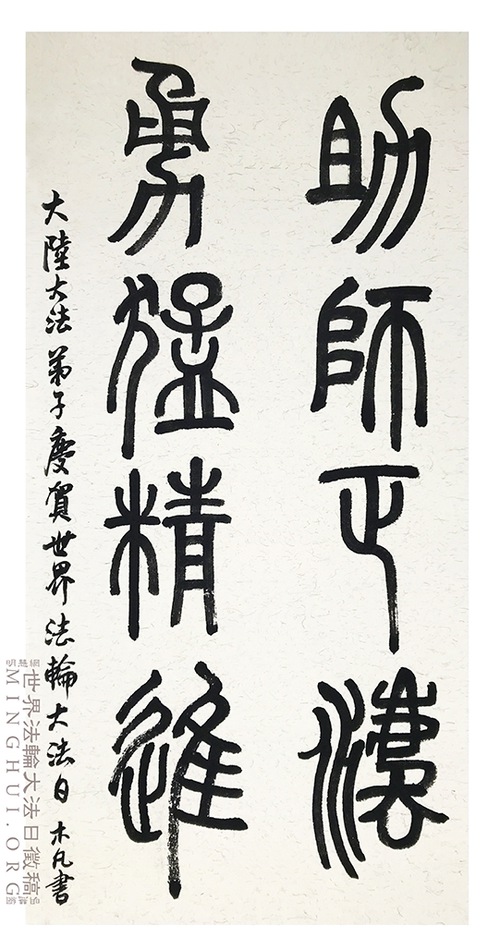 助師正法
勇猛精進
大陸大法弟子慶賀世界法輪大法日 木凡書
世界法輪大法日徵稿
MINGHUI.ORG